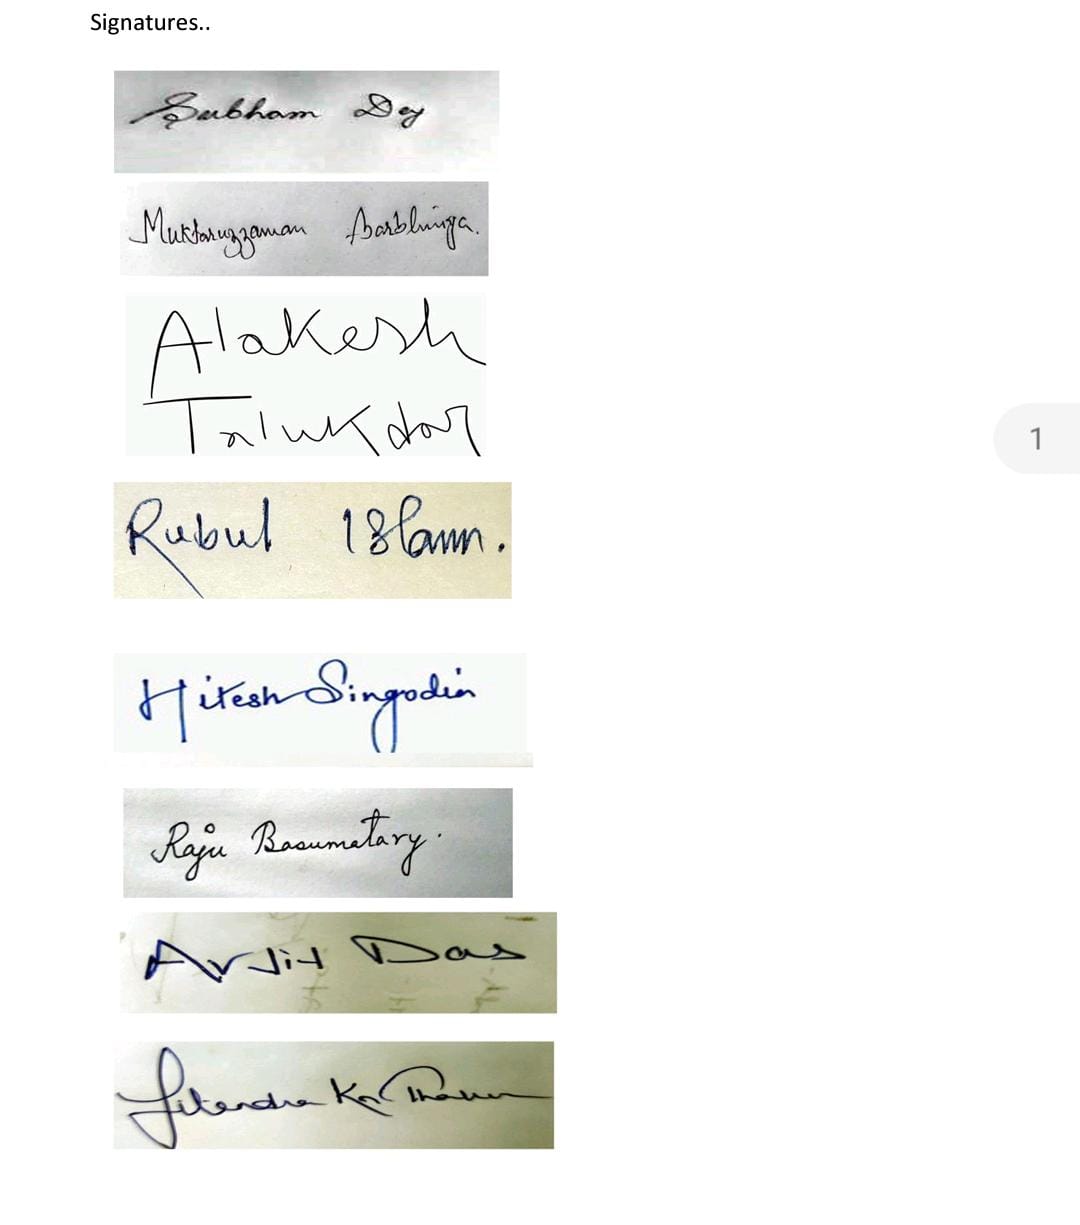 Signatures..
Subham Dey
Muktaruzzaman Barbhuiya.
Alakesh
Talukdar
1
Rubul Islam.
Hitesh Singodia
Raju Basumatary.
Arjit Das
Jitendra Kr